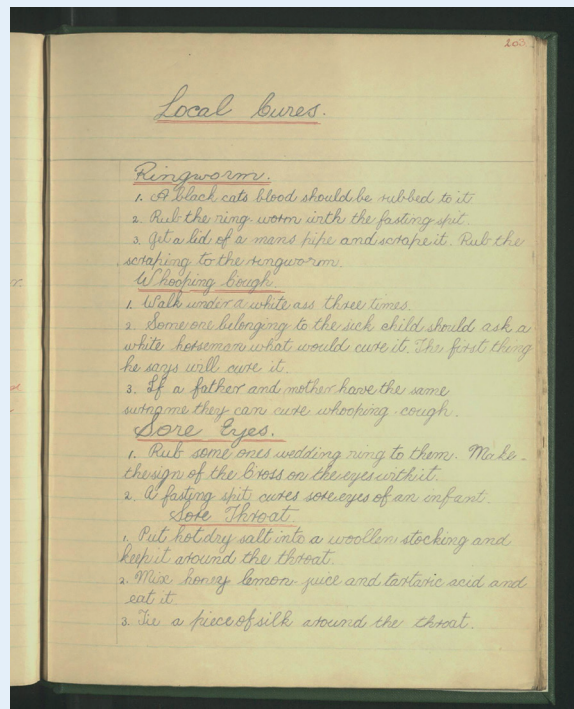 203
Local Cures.
Ringworm.
1. A black cats blood should be rubbed to it
2. Rub the ring worm with the fasting spit.
3. Get a lid of a mans pipe and scrape it. Rub the
scraping to the ringworm.
Whooping Cough.
1. Walk under a white ass three times.
2. Some one belonging to the sick child should ask a
white horseman what would cure it. The first thing
he says will cure it.
3. If a father and mother have the same
surname they can cure whooping cough.
Sore Eyes.
1. Rub some ones wedding ring to them. Make
the sign of the Cross on the eyes with it.
2. A fasting spit cures sore eyes of an infant.
Sore Throat
1. Put hot dry salt into a woollen stocking and
keep it around the throat.
2. Mix honey lemon juice and tartaric acid and
eat it
3. Tie a piece of silk around the throat.